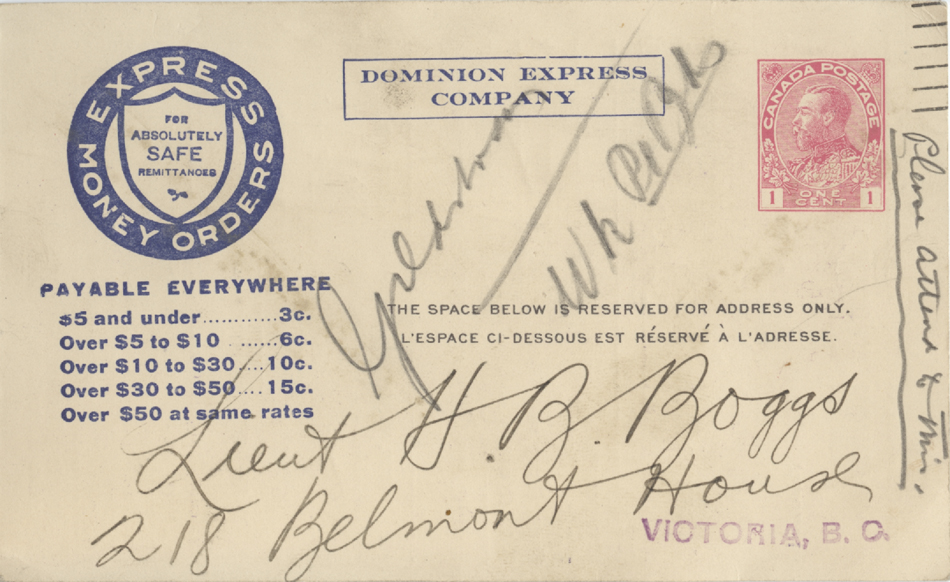 EXPRESS
MONEY ORDERS
FOR
ABSOLUTELY
SAFE
REMITTANCES
PAYABLE EVERYWHERE
$5 and under............3c.
Over $5 to $10 ......6c.
Over $10 to $30....10c.
Over $30 to $50....15c.
Over $50 at same rates
DOMINION EXPRESS
COMPANY
CANADA POSTAGE
1 ONE CENT 1
THE SPACE BELOW IS RESERVED FOR ADDRESS ONLY.
L'ESPACE CI-DESSOUS EST RÉSERVÉ À L'ADRESSE.
Lieut H. B. Boggs
218 Belmont House
VICTORIA, B. C.
Please attend to this.